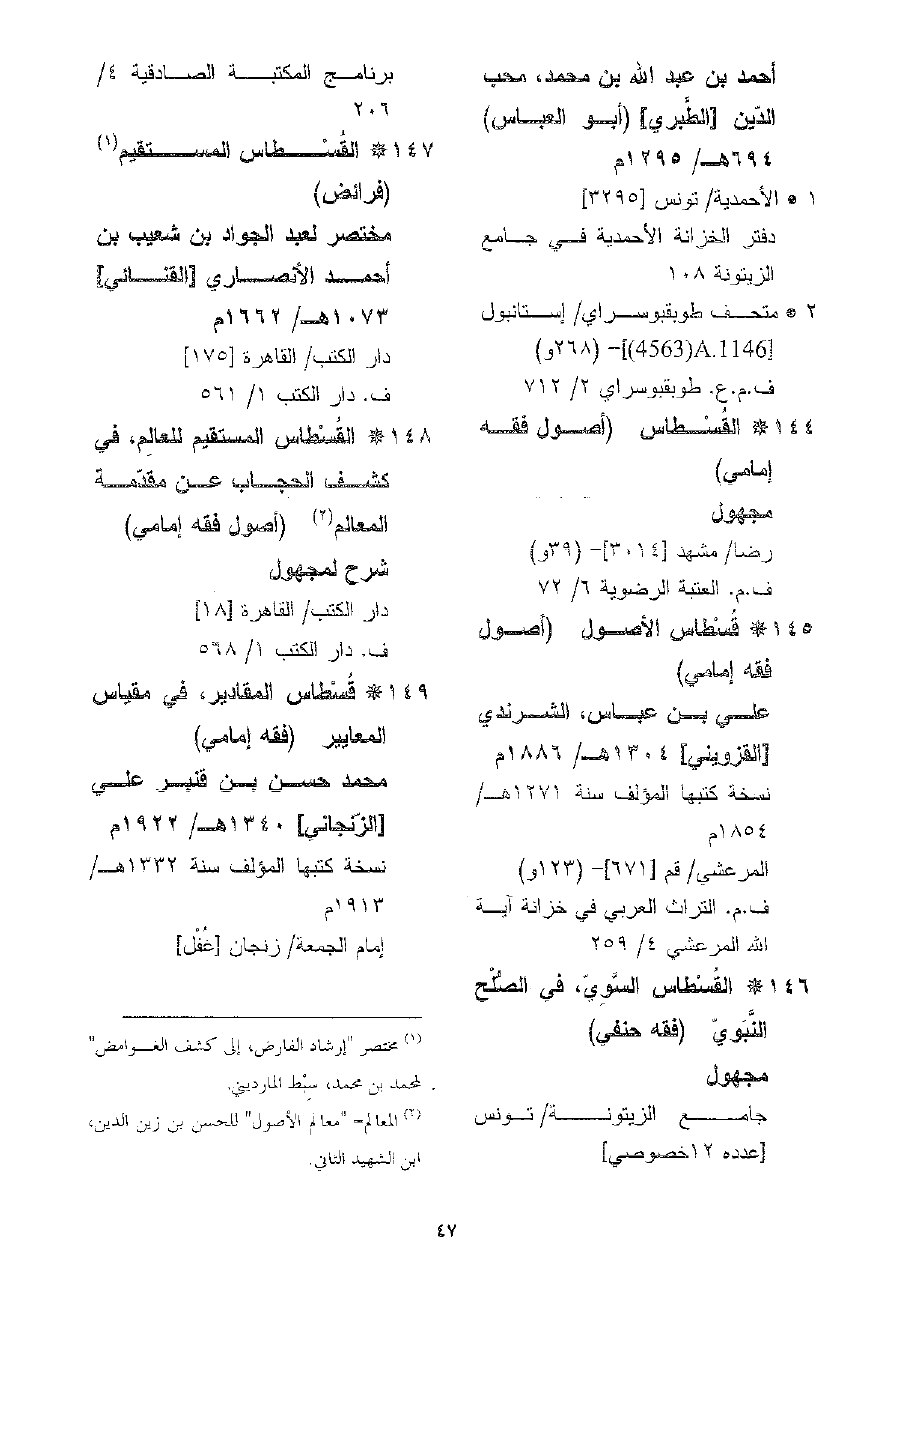 أحمد بن عبد الله بن محمد، محب
الدّين [الطَّبري] (أبو العباس)
٦٩٤هـ/ ١٢٩٥م
١ * الأحمدية/ تونس [٣٢٩٥]
دفتر الخزانة الأحمدية في جامع
الزيتونة ١٠٨
٢ * متحف طوبقبوسراي/ إستانبول
[4563)A.1146)]– (٢٦٨و)
ف.م.ع. طوبقبوسراي ٢/ ٧١٢
١٤٤* القُسْطاس (أصول فقه
إمامي)
مجهول
رضا/ مشهد [٣٠١٤]– (٣٩و)
ف.م. العتبة الرضوية ٦/ ٧٢
١٤٥* قُسْطاس الأصول (أصول
فقه إمامي)
علي بن عباس، الشرندي
[القزويني] ١٣٠٤هـ/ ١٨٨٦م
نسخة كتبها المؤلف سنة ١٢٧١هـ/
١٨٥٤م
المرعشي/ قم [٦٧١]– (١٢٣و)
ف.م. التراث العربي في خزانة آية
الله المرعشي ٤/ ٢٥٩
١٤٦* القُسْطاس السَّوِيّ، في الصُّلْح
النَّبَويّ (فقه حنفي)
مجهول
جامع الزيتونة/ تونس
[عدده ١٢خصوصي]
برنامج المكتبة الصادقية ٤/
٢٠٦
١٤٧* القُسْطاس المستقيم(١)
(فرائض)
مختصر لعبد الجواد بن شعيب بن
أحمد الأنصاري [القنائي]
١٠٧٣هـ/ ١٦٦٢م
دار الكتب/ القاهرة [١٧٥]
ف. دار الكتب ١/ ٥٦١
١٤٨* القُسْطاس المستقيم للعالِم، في
كشف الحجاب عن مقدّمة
المعالم(٢) (أصول فقه إمامي)
شرح لمجهول
دار الكتب/ القاهرة [١٨]
ف. دار الكتب ١/ ٥٦٨
١٤٩* قُسْطاس المقادير، في مقياس
المعايير (فقه إمامي)
محمد حسن بن قنبر علي
[الزّنجاني] ١٣٤٠هـ/ ١٩٢٢م
نسخة كتبها المؤلف سنة ١٣٣٢هـ/
١٩١٣م
إمام الجمعة/ زنجان [غُفْل]
(١) مختصر "إرشاد الفارض، إلى كشف الغوامض"
لمحمد بن محمد، سِبْط المارديني.
(٢) المعالم– "معالم الأصول" للحسن بن زين الدين،
ابن الشهيد الثاني.
٤٧